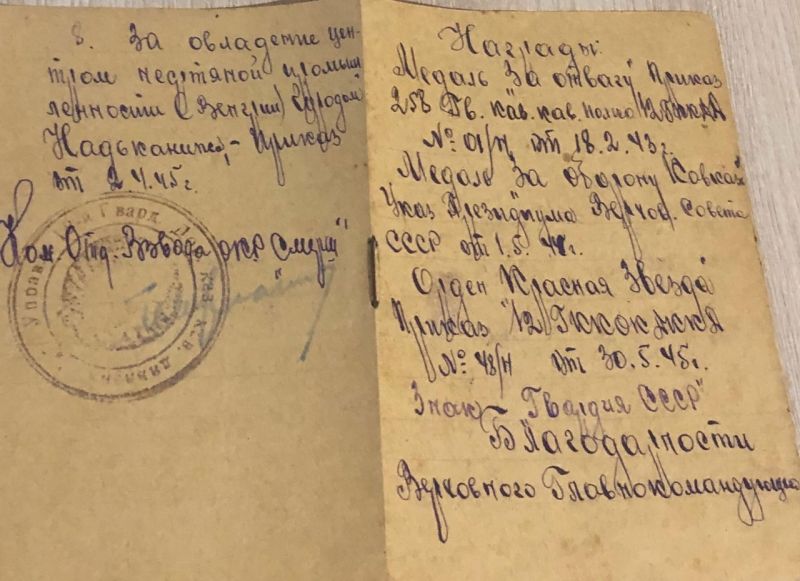 8. За овладение цен-
тром нефтяной промыш
ленности (Венгрии) городом
Надьканижа, - Приказ
от 2.4.45г.
Ком. Отд. Взвода ОКР "Смерш"
Награды:
Медаль "За отвагу" Приказ
258 Гв. кав. кав. полка
№ 01/н от 18.2.43г.
Медаль "За оборону Кавказа"
Указ Президиума Верхов. Совета
СССР от 1.5.44г.
Орден "Красная Звезда"
Приказ 12 ГККОКДККА
№ 48/н от 30.5.45г.
Знак "Гвардия СССР"
Благодарности
Верховного Главнокомандующего
Управ
гвард.